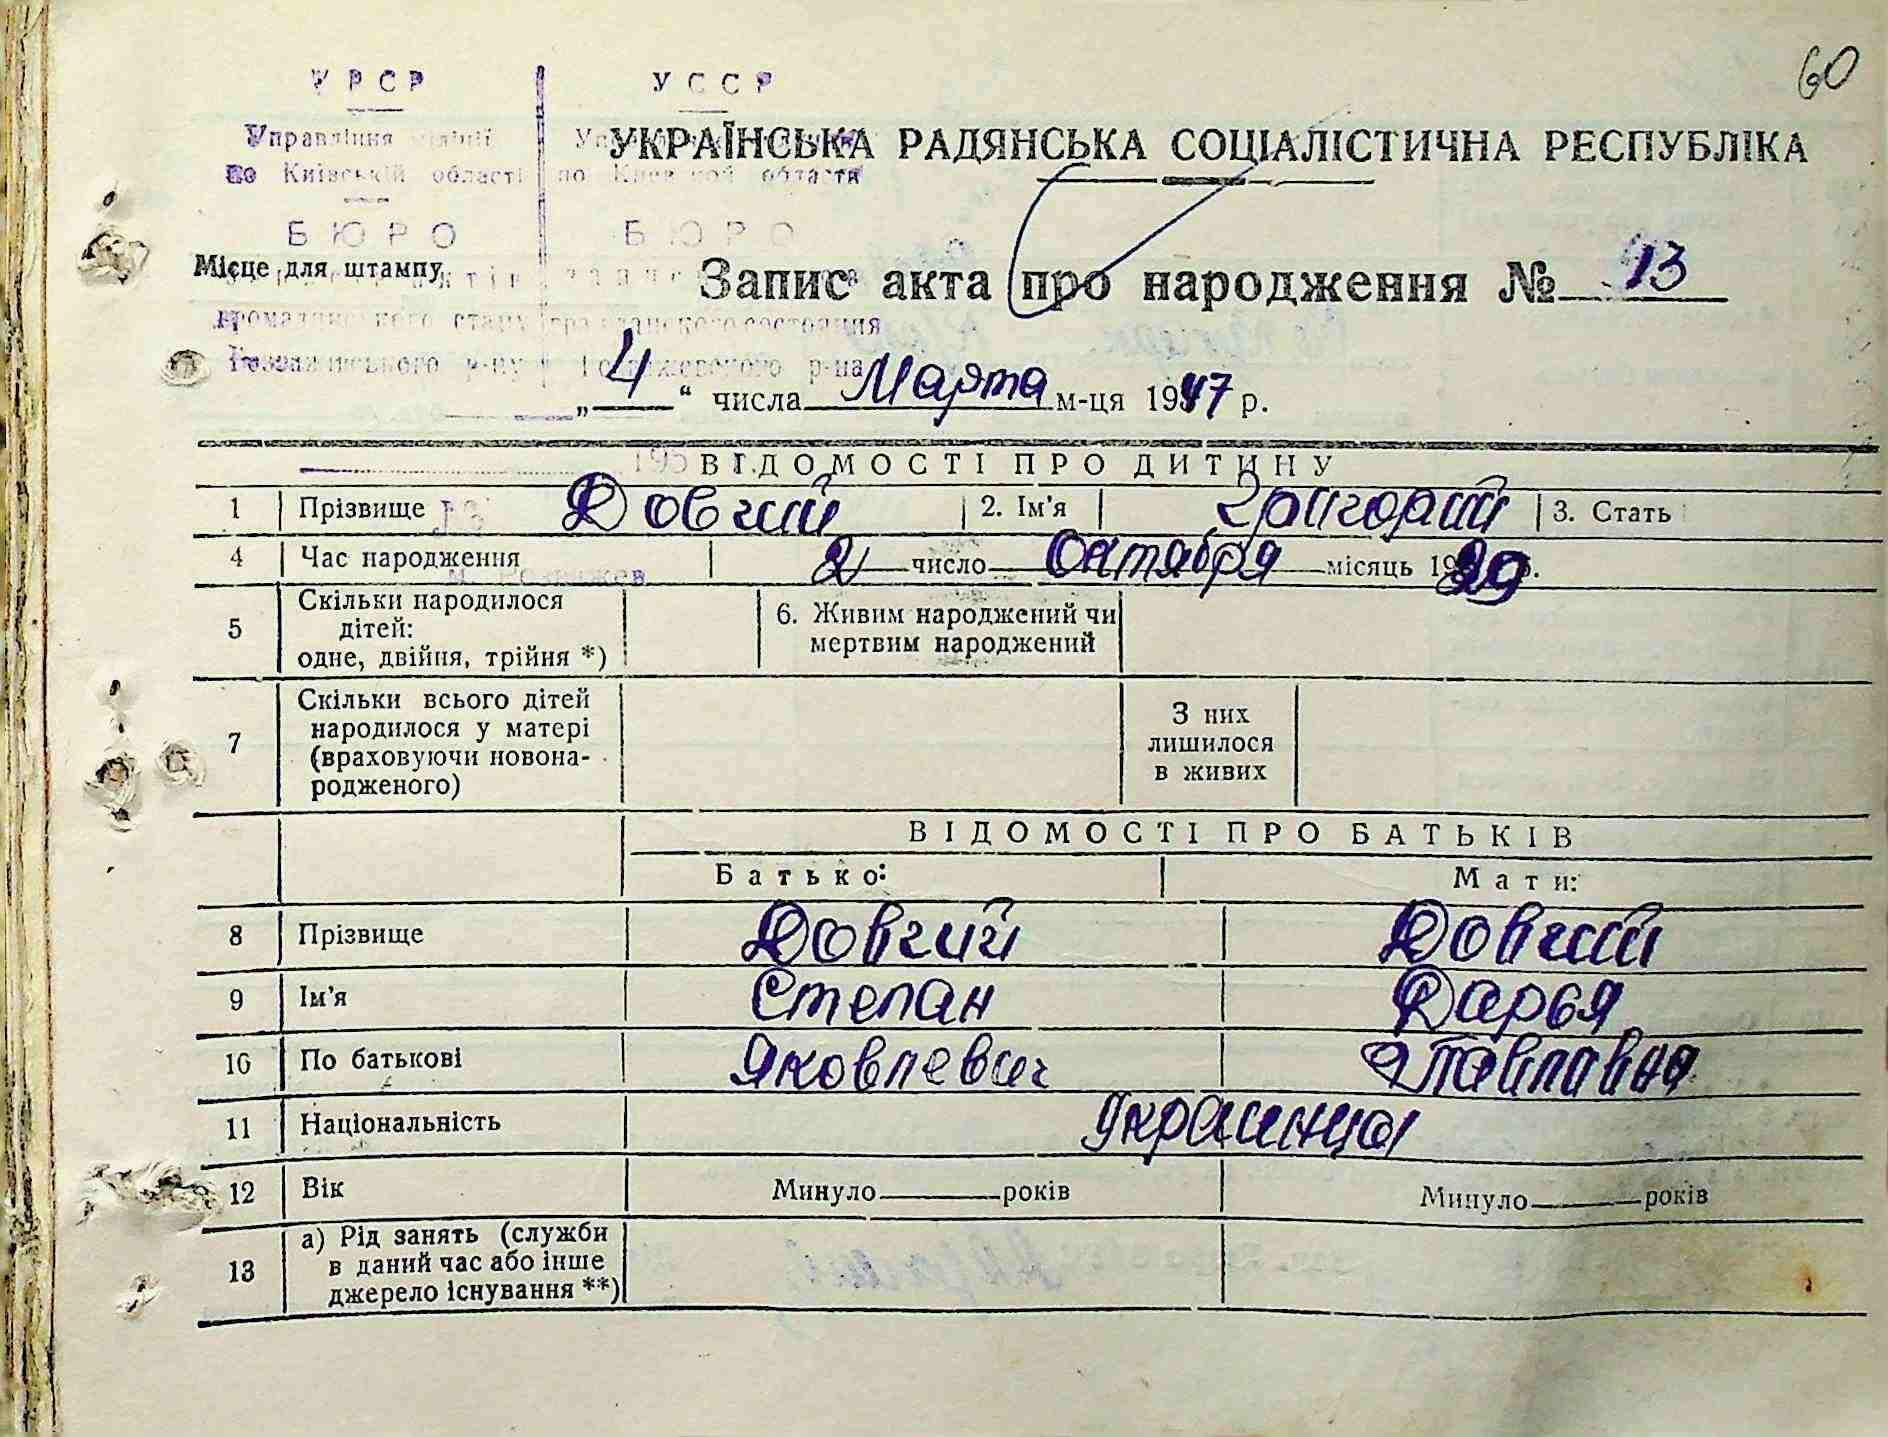 60
УРСР УССР
Управління міліції
по Київській області по Киевской области
УКРАЇНСЬКА РАДЯНСЬКА СОЦІАЛІСТИЧНА РЕСПУБЛІКА
БЮРО БЮРО
Місце для штампу
Запис акта про народження № 13
громадянського стану гражданского состояния
р-ну р-на
„4“ числа Марта м-ця 1947 р.
195
ВІДОМОСТІ ПРО ДИТИНУ
1 Прізвище Довгий 2. Ім'я Григорий 3. Стать
4 Час народження 2 число Октября місяць 1929
5 Скільки народилося дітей: одне, двійня, трійня *) 6. Живим народжений чи мертвим народжений
7 Скільки всього дітей народилося у матері (враховуючи новона-родженого) З них лишилося в живих
ВІДОМОСТІ ПРО БАТЬКІВ
Батько: Мати:
8 Прізвище Довгий Довгий
9 Ім'я Степан Дарья
10 По батькові Яковлевич Павлавна
11 Національність Украинцы
12 Вік Минуло років Минуло років
13 а) Рід занять (служби в даний час або інше джерело існування **)